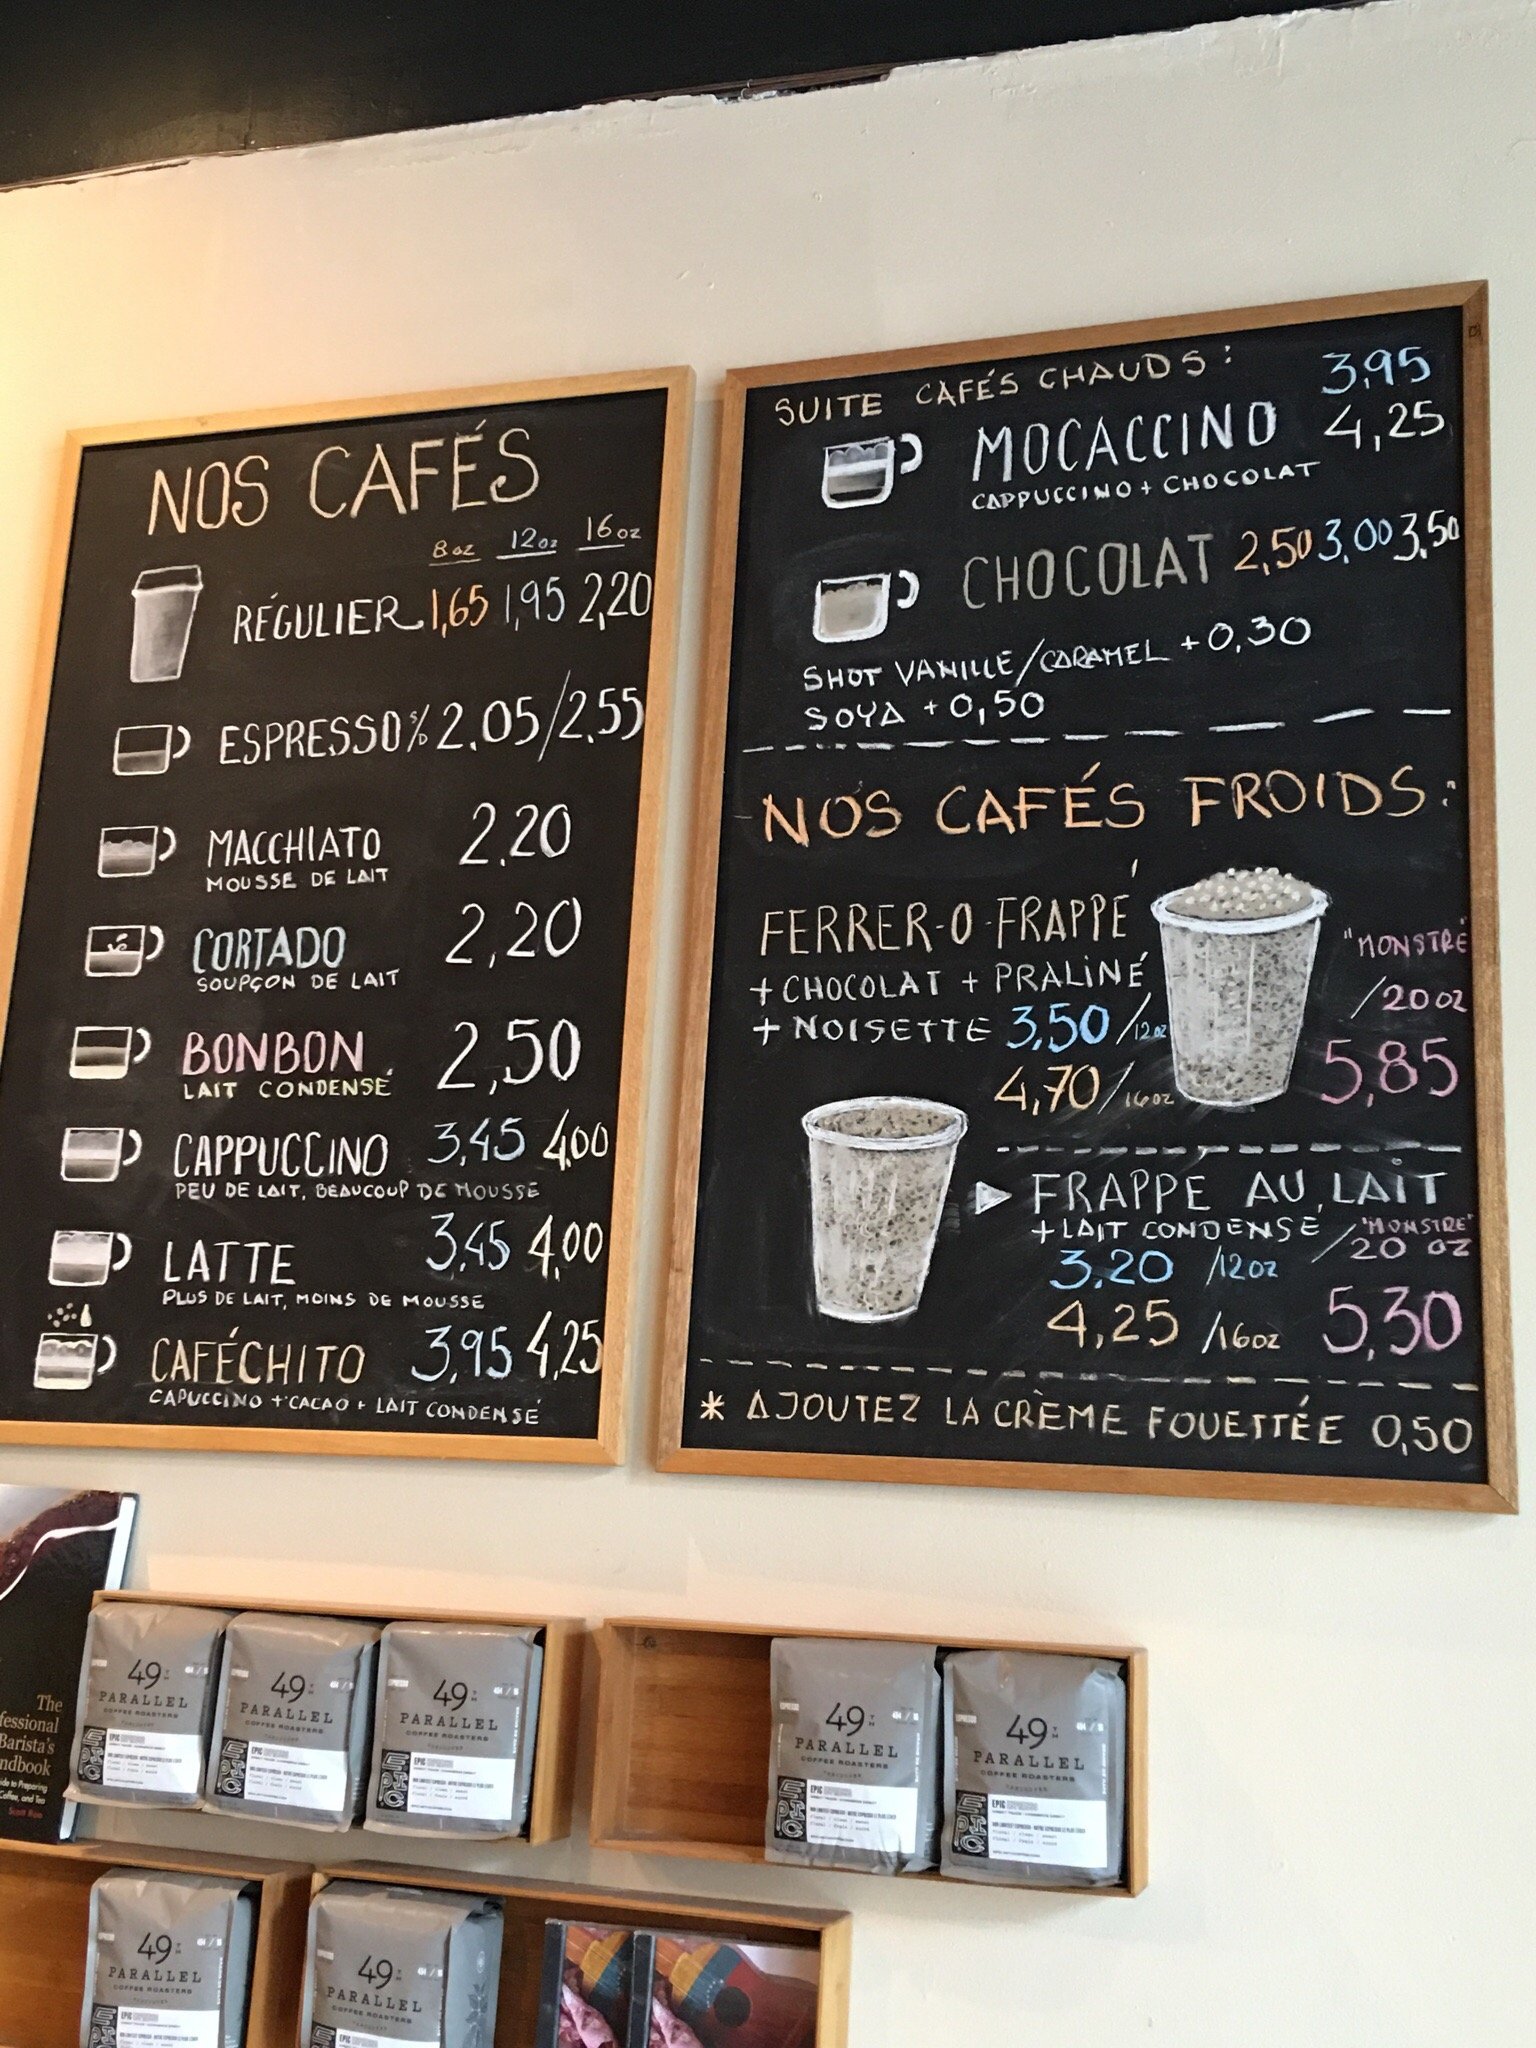 NOS CAFÉS
8oz 12oz 16oz
RÉGULIER 1,65 1,95 2,20
ESPRESSO S/D 2.05/2.55
MACCHIATO 2.20
MOUSSE DE LAIT
CORTADO 2,20
SOUPÇON DE LAIT
BONBON 2,50
LAIT CONDENSÉ
CAPPUCCINO 3,45 4,00
PEU DE LAIT, BEAUCOUP DE MOUSSE
LATTE 3,45 4,00
PLUS DE LAIT, MOINS DE MOUSSE
CAFÉCHITO 3,95 4,25
CAPUCCINO + CACAO + LAIT CONDENSÉ
SUITE CAFÉS CHAUDS : 3,95
MOCACCINO 4,25
CAPPUCCINO + CHOCOLAT
CHOCOLAT 2,50 3,00 3,50
SHOT VANILLE/CARAMEL +0,30
SOYA +0,50
NOS CAFÉS FROIDS :
FERRER-O-FRAPPÉ
"MONSTRE"
+ CHOCOLAT + PRALINÉ
/20 oz
+ NOISETTE 3,50/12oz
4,70/16oz 5,85
FRAPPÉ AU LAIT
+ LAIT CONDENSÉ /"MONSTRE"
3,20 /12oz 20 oz
4,25 /16oz 5,30
* AJOUTEZ LA CRÈME FOUETTÉE 0,50
The
Barista's
Preparing
Coffee, and Tea
49TH
PARALLEL
COFFEE ROASTERS
EPIC ESPRESSO
EPIC
49TH
PARALLEL
COFFEE ROASTERS
EPIC ESPRESSO
EPIC
49TH
PARALLEL
COFFEE ROASTERS
EPIC ESPRESSO
EPIC
49TH
PARALLEL
COFFEE ROASTERS
EPIC ESPRESSO
EPIC
49TH
PARALLEL
COFFEE ROASTERS
EPIC ESPRESSO
EPIC
49TH
PARALLEL
COFFEE ROASTERS
EPIC ESPRESSO
49TH
PARALLEL
COFFEE ROASTERS
EPIC ESPRESSO